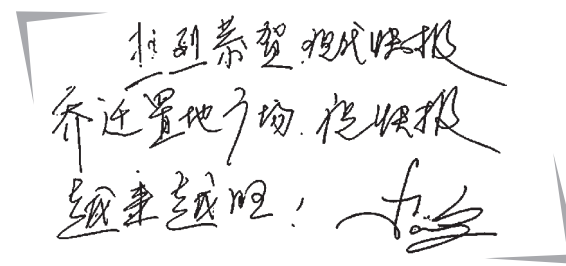 热烈恭贺现代快报
乔迁置地广场.祝快报
越来越旺!